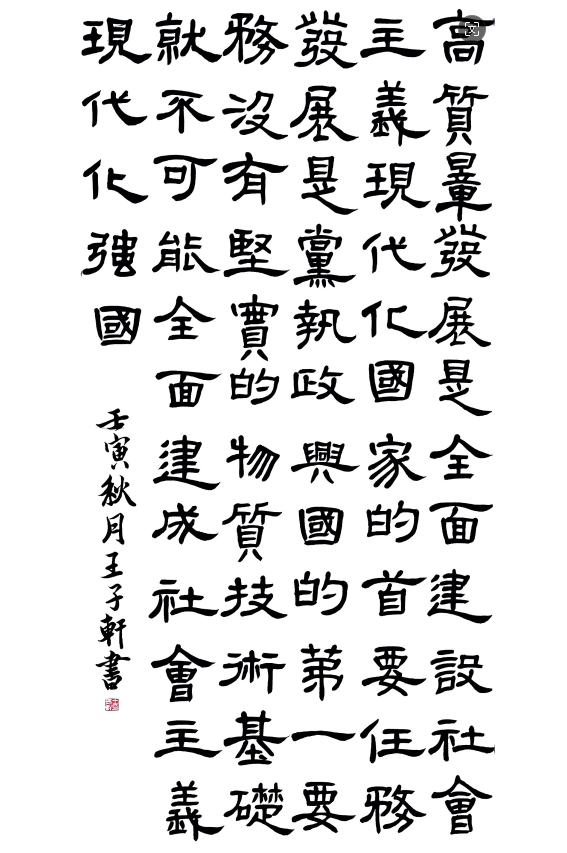 高質量發展是全面建設社會
主義現代化國家的首要任務
發展是黨執政興國的第一要
務沒有堅實的物質技術基礎
就不可能全面建成社會主義
現代化強國
壬寅秋月王子軒書